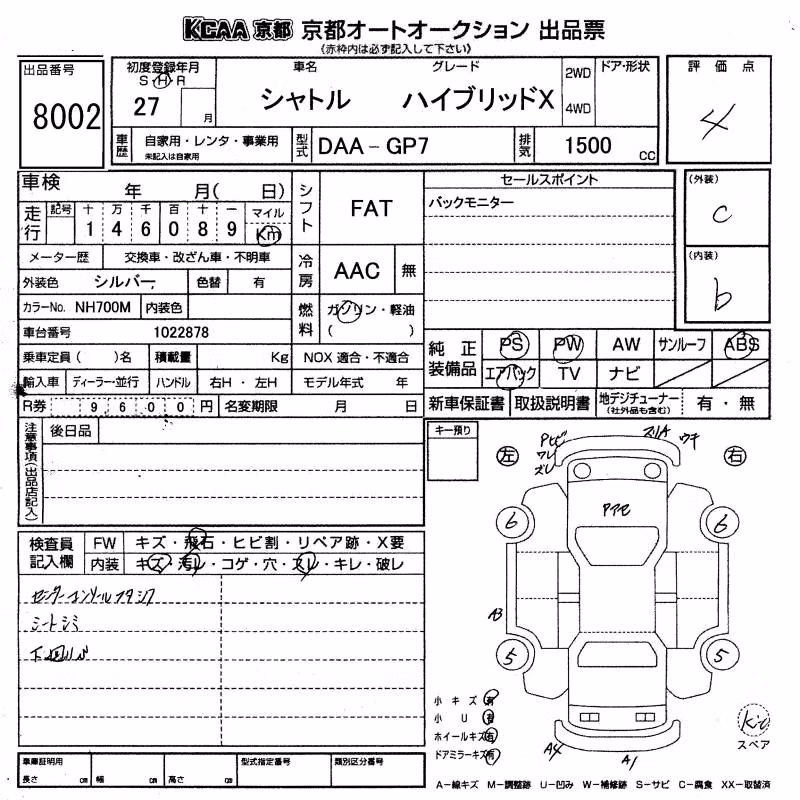 KCAA 京都 京都オートオークション 出品票
(赤枠内は必ず記入して下さい)
出品番号
8002
初度登録年月
S H R
27 月
車名 グレード
シャトル ハイブリッドX
2WD
4WD
ドア・形状
評価点
4
車歴 自家用・レンタ・事業用
未記入は自家用
型式 DAA-GP7
排気 1500 cc
車検 年 月( 日)
走行 記号 十 万 千 百 十 一 マイル
1 4 6 0 8 9 Km
メーター歴 交換車・改ざん車・不明車
外装色 シルバー 色替 有
カラーNo. NH700M 内装色
車台番号 1022878
乗車定員( )名 積載量 Kg NOX 適合・不適合
輸入車 ディーラー・並行 ハンドル 右H・左H モデル年式 年
R券 9600 円 名変期限 月 日
シフト FAT
冷房 AAC 無
燃料 ガソリン・軽油
( )
セールスポイント
バックモニター
(外装)
C
(内装)
b
純正装備品 PS PW AW サンルーフ ABS
エアバック TV ナビ
新車保証書 取扱説明書 地デジチューナー (社外品も含む) 有・無
注意事項(出品店記入)
後日品
キー預り
検査員記入欄
FW キズ・飛石・ヒビ割・リペア跡・X要
内装 キズ・汚レ・コゲ・穴・スレ・キレ・破レ
センターコンソールフタシワ
シートシミ
左 右
6 6
A3
5 5
A4 A1
小キズ 有
小U 有
ホイールキズ 有
ドアミラーキズ 有
スペア
車庫証明用
長さ cm 幅 cm 高さ cm
型式指定番号 類別区分番号
A-線キズ M-調整跡 U-凹み W-補修跡 S-サビ C-腐食 XX-取替済